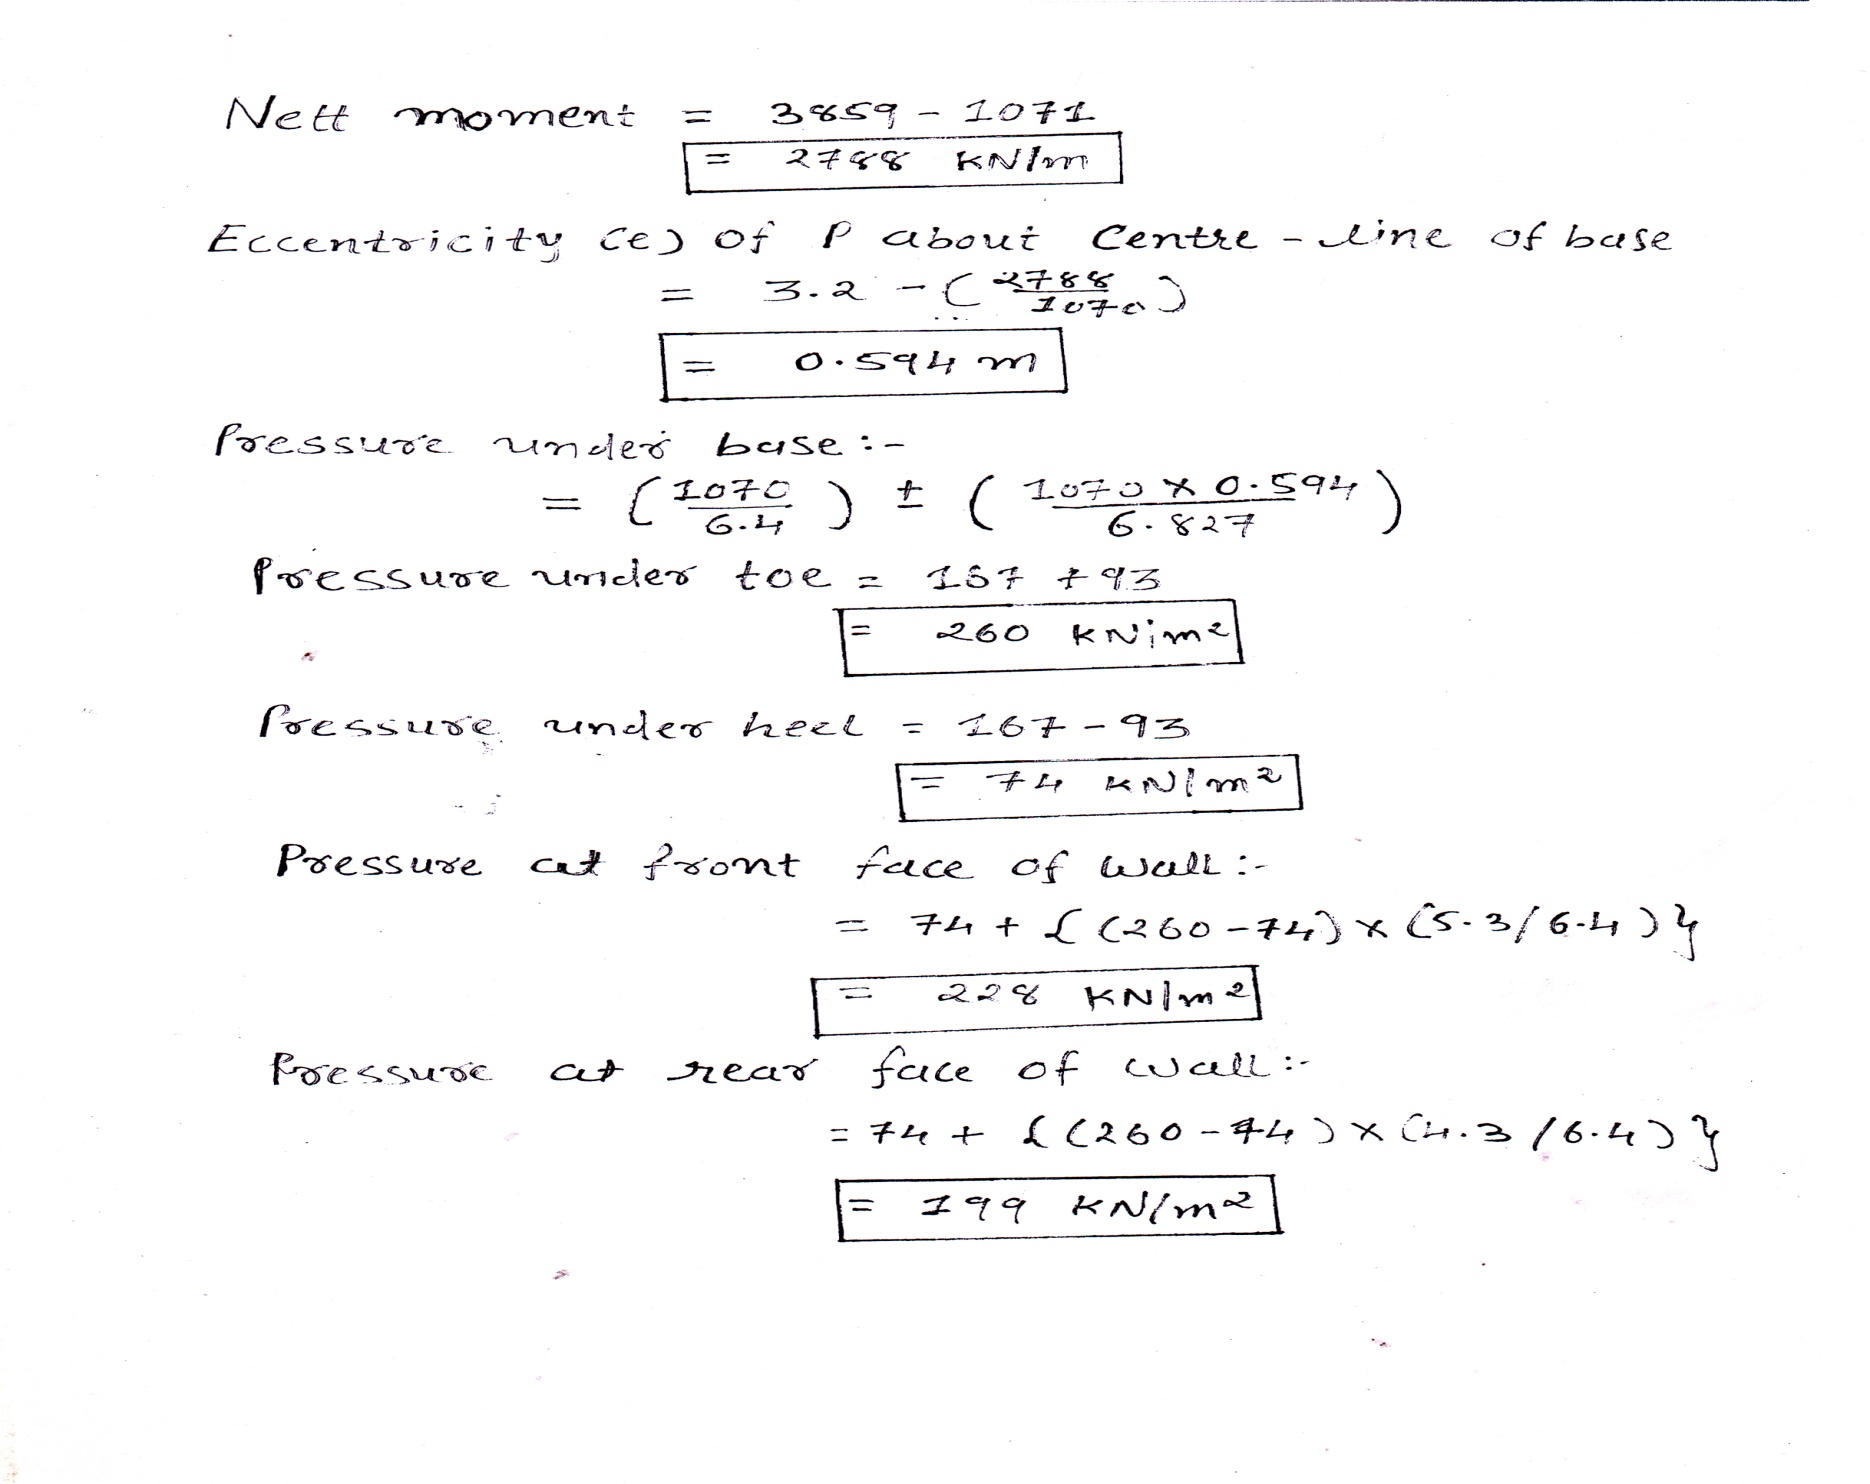 Nett moment = 3859 - 1071
= 2788 KN/m
Eccentricity (e) of P about Centre - line of base
= 3.2 - ( 2788 / 1070 )
= 0.594 m
Pressure under base :-
= ( 1070 / 6.4 ) ± ( 1070 x 0.594 / 6.827 )
Pressure under toe = 167 + 93
= 260 KN/m2
Pressure under heel = 167 - 93
= 74 KN/m2
Pressure at front face of wall :-
= 74 + { (260 - 74) x (5.3/6.4) }
= 228 KN/m2
Pressure at rear face of wall :-
= 74 + { (260 - 74) x (4.3/6.4) }
= 199 KN/m2